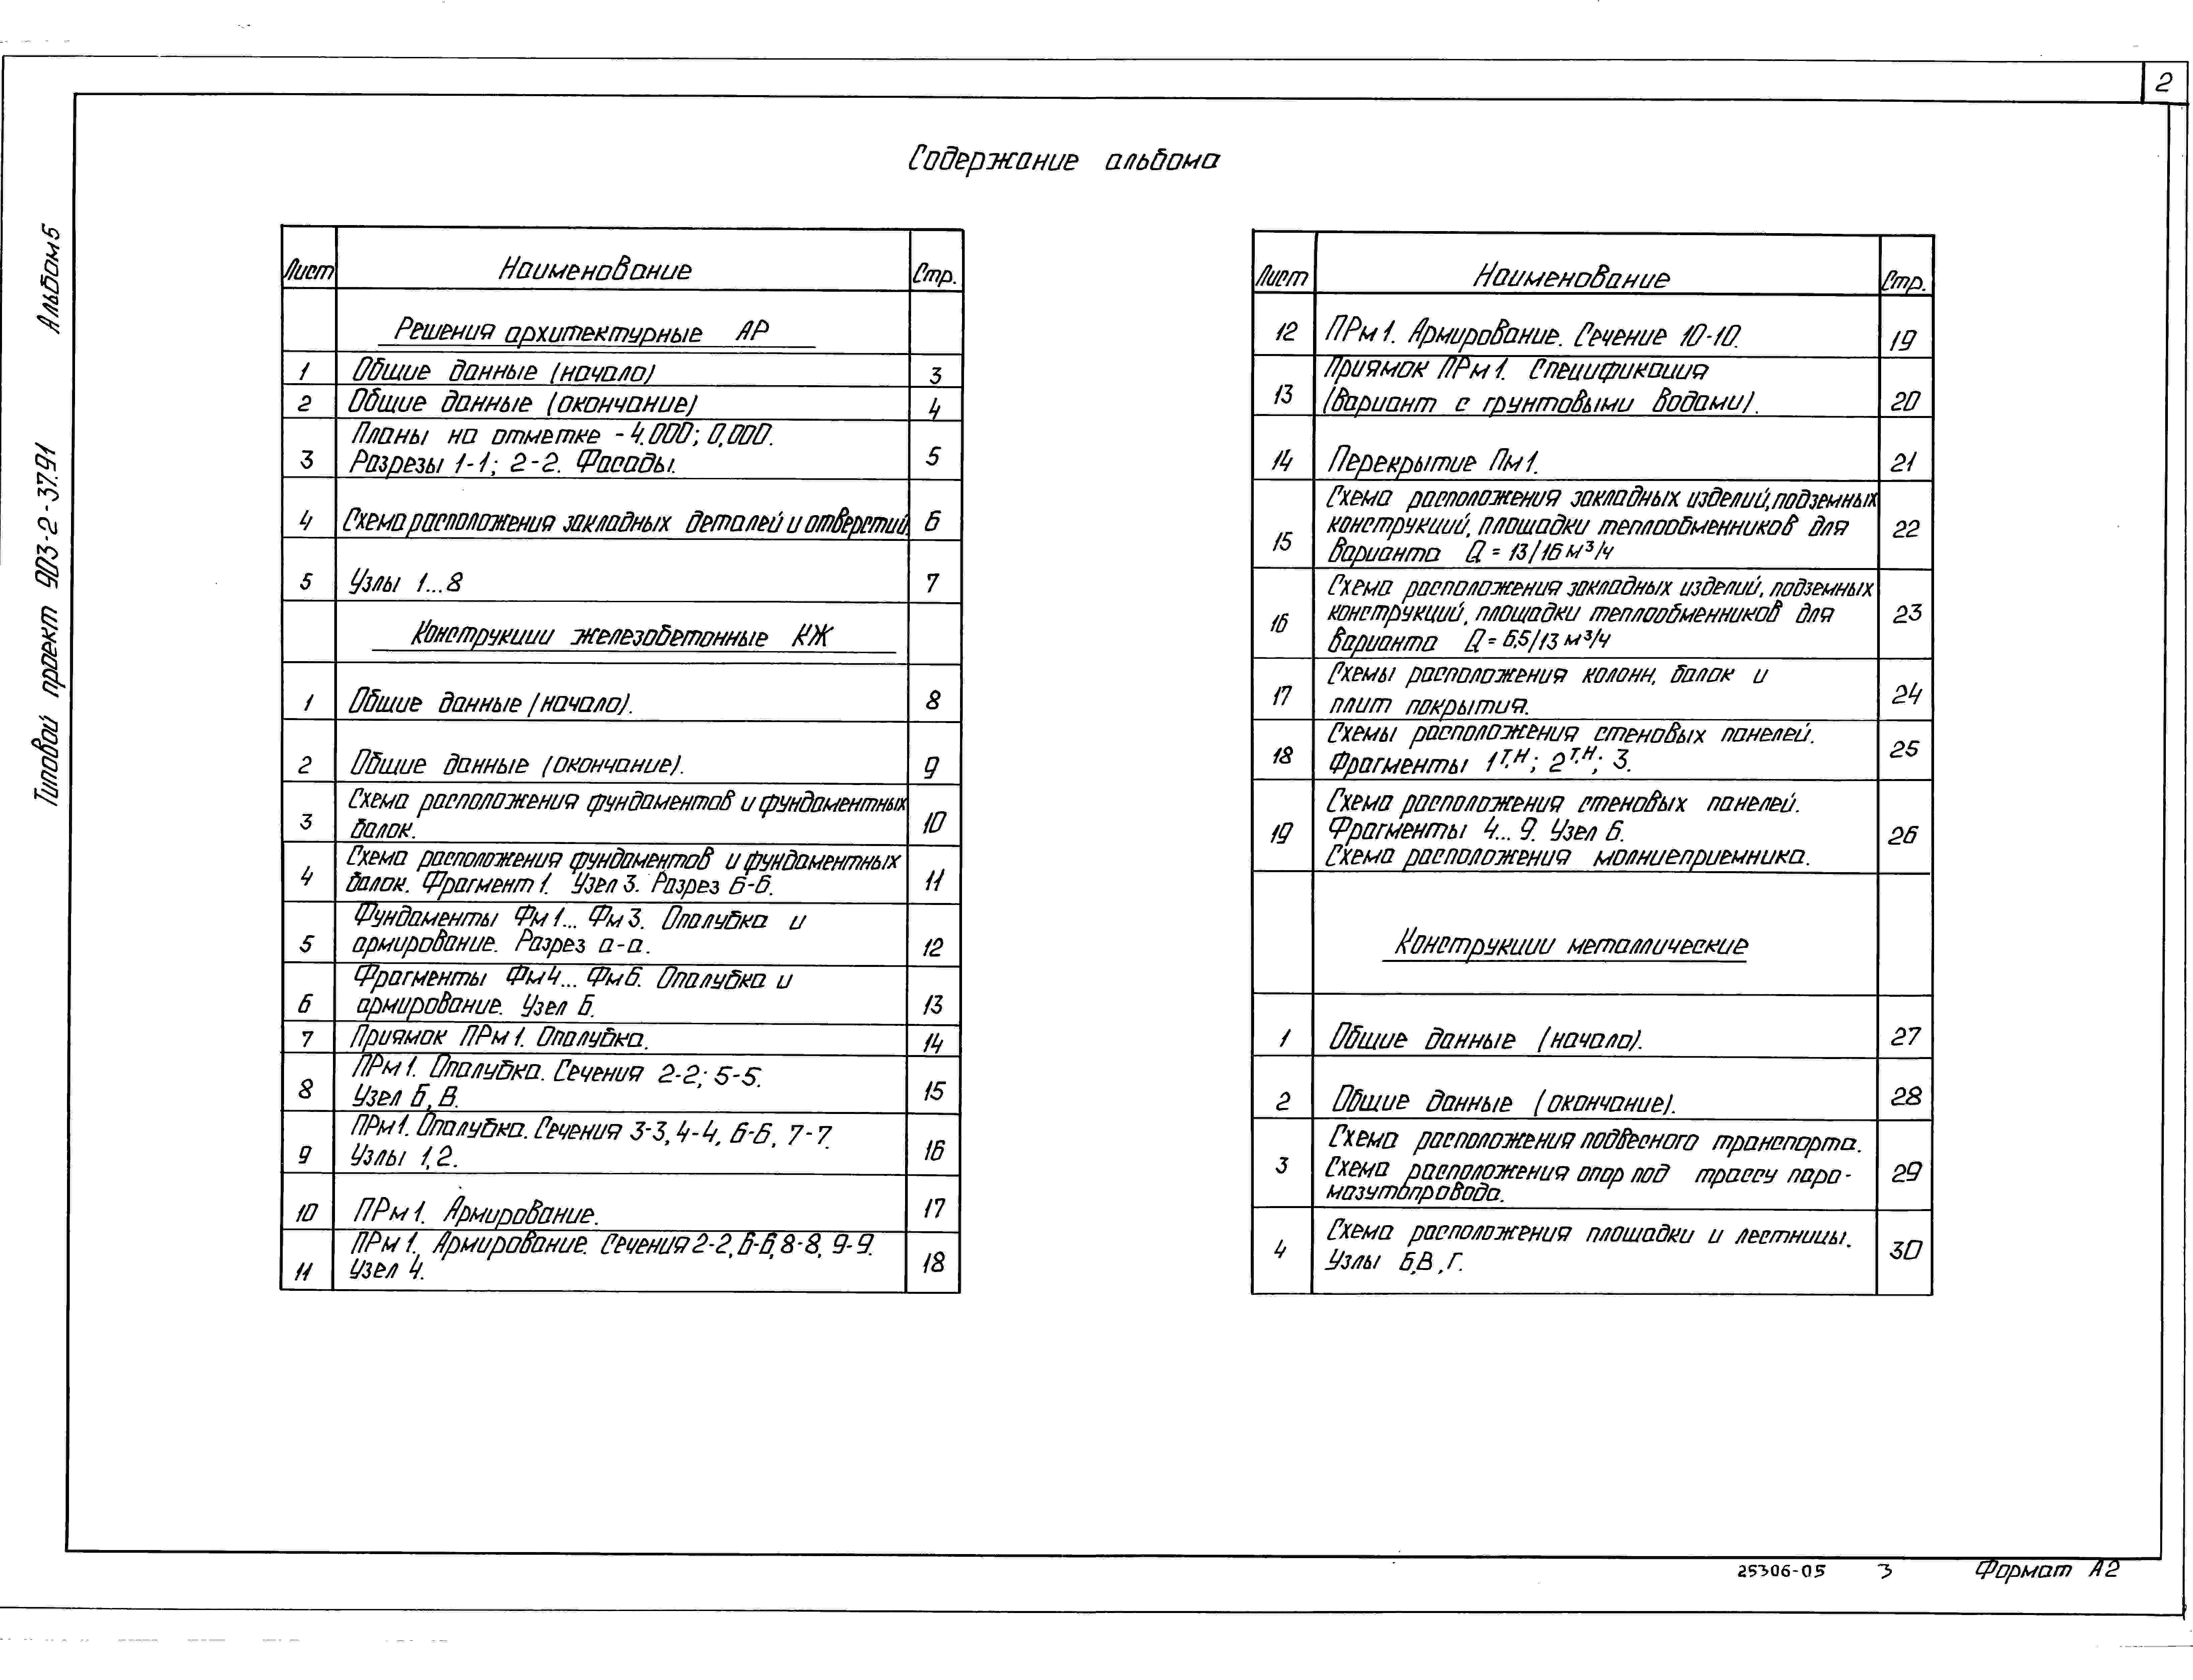 2
Содержание альбома
Альбом 5
Типовой проект 903-2-37.91
Лист Наименование Стр.
Решения архитектурные АР
1 Общие данные (начало) 3
2 Общие данные (окончание) 4
3 Планы на отметке -4.000; 0,000.
Разрезы 1-1; 2-2. Фасады. 5
4 Схема расположения закладных деталей и отверстий. 6
5 Узлы 1...8 7
Конструкции железобетонные КЖ
1 Общие данные (начало). 8
2 Общие данные (окончание). 9
3 Схема расположения фундаментов и фундаментных
балок. 10
4 Схема расположения фундаментов и фундаментных
балок. Фрагмент 1. Узел 3. Разрез б-б. 11
5 Фундаменты Фм1... Фм3. Опалубка и
армирование. Разрез а-а. 12
6 Фрагменты Фм4... Фм6. Опалубка и
армирование. Узел Б. 13
7 Приямок ПРм1. Опалубка. 14
8 ПРм1. Опалубка. Сечения 2-2; 5-5.
Узел Б, В. 15
9 ПРм1. Опалубка. Сечения 3-3, 4-4, 6-6, 7-7.
Узлы 1,2. 16
10 ПРм1. Армирование. 17
11 ПРм1. Армирование. Сечения 2-2, 6-6, 8-8, 9-9.
Узел 4. 18
Лист Наименование Стр.
12 ПРм1. Армирование. Сечение 10-10. 19
13 Приямок ПРм1. Спецификация
(Вариант с грунтовыми водами). 20
14 Перекрытие Пм1. 21
15 Схема расположения закладных изделий, подземных
конструкций, площадки теплообменников для
варианта Q = 13/16 м³/ч 22
16 Схема расположения закладных изделий, подземных
конструкций, площадки теплообменников для
варианта Q = 6,5/13 м³/ч 23
17 Схемы расположения колонн, балок и
плит покрытия. 24
18 Схемы расположения стеновых панелей.
Фрагменты 1т,н; 2т,н; 3. 25
19 Схема расположения стеновых панелей.
Фрагменты 4... 9. Узел 6.
Схема расположения молниеприемника. 26
Конструкции металлические
1 Общие данные (начало). 27
2 Общие данные (окончание). 28
3 Схема расположения подвесного транспорта.
Схема расположения опор под трассу паро-
мазутопровода. 29
4 Схема расположения площадки и лестницы.
Узлы Б,В,Г. 30
25306-05 3 Формат А2